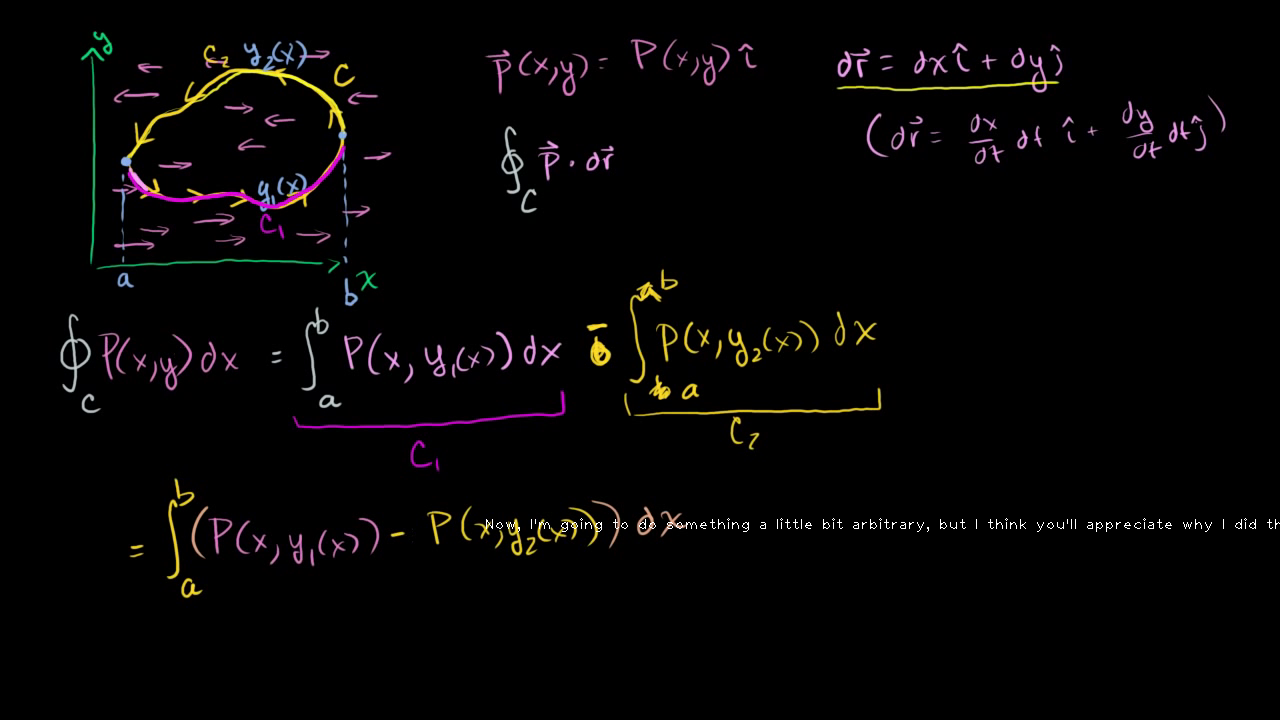 y
C₂ y₂(x)
C
y₁(x)
C₁
a
b
x
p⃗(x,y) = P(x,y) î
dr⃗ = dx î + dy ĵ
(dr⃗ = dx/dt dt î + dy/dt dt ĵ)
∮_C p⃗ · dr⃗
∮_C P(x,y) dx = ∫_a^b P(x, y₁(x)) dx - ∫_a^b P(x, y₂(x)) dx
C₁
C₂
= ∫_a^b (P(x, y₁(x)) - P(x, y₂(x))) dx
Now, I'm going to do something a little bit arbitrary, but I think you'll appreciate why I did th